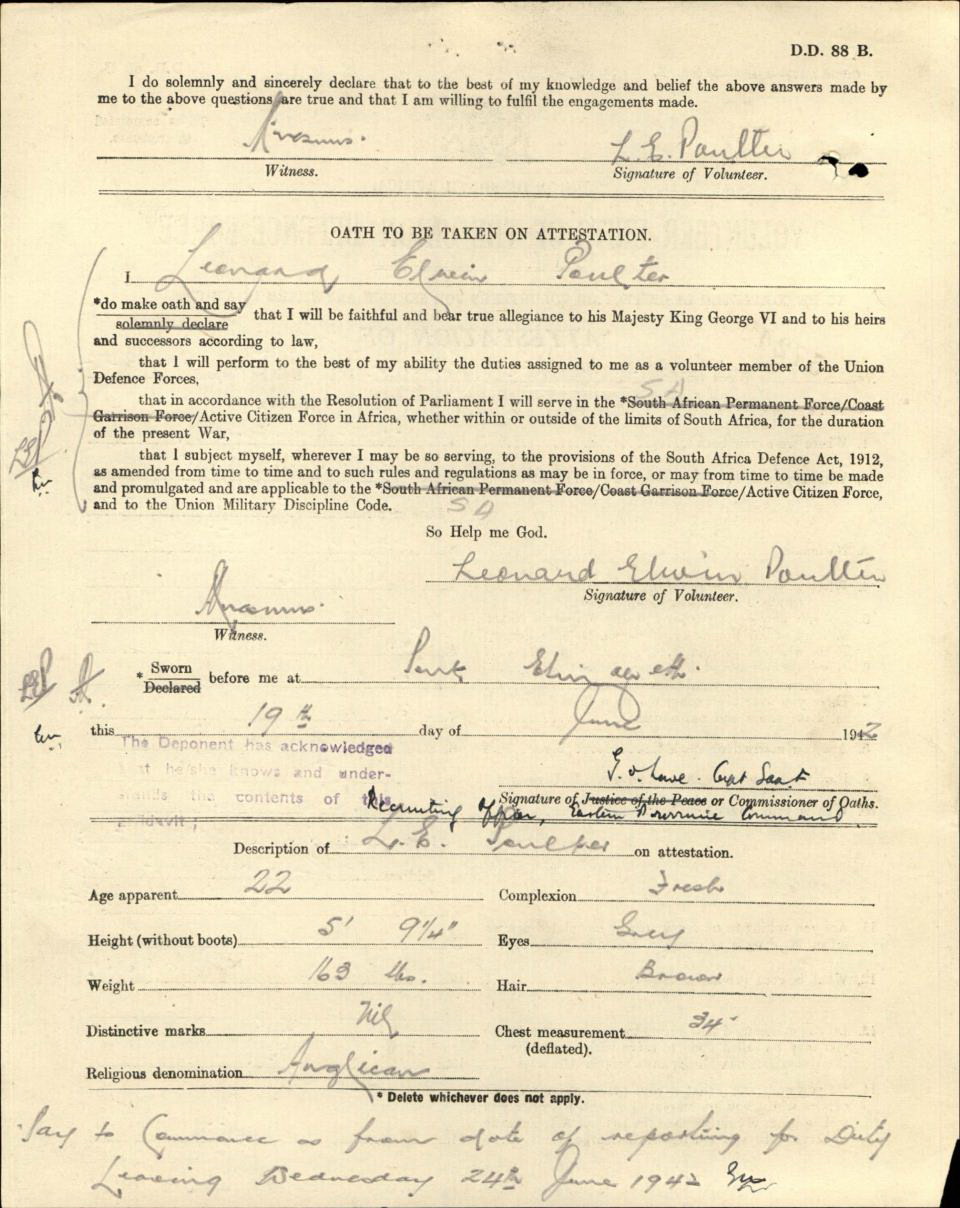 D.D. 88 B.
I do solemnly and sincerely declare that to the best of my knowledge and belief the above answers made by
me to the above questions are true and that I am willing to fulfil the engagements made.
L. E. Poulter
Witness. Signature of Volunteer.
OATH TO BE TAKEN ON ATTESTATION.
I Leonard Elwin Poulter
*do make oath and say
solemnly declare that I will be faithful and bear true allegiance to his Majesty King George VI and to his heirs
and successors according to law,
that I will perform to the best of my ability the duties assigned to me as a volunteer member of the Union
Defence Forces,
SA
that in accordance with the Resolution of Parliament I will serve in the *South African Permanent Force/Coast
Garrison Force/Active Citizen Force in Africa, whether within or outside of the limits of South Africa, for the duration
of the present War,
LEP
that I subject myself, wherever I may be so serving, to the provisions of the South Africa Defence Act, 1912,
as amended from time to time and to such rules and regulations as may be in force, or may from time to time be made
and promulgated and are applicable to the *South African Permanent Force/Coast Garrison Force/Active Citizen Force,
and to the Union Military Discipline Code. SA
So Help me God.
Leonard Elwin Poulter
Signature of Volunteer.
Witness.
LEP
* Sworn
Declared before me at Port Elizabeth
this 19th day of June 1942
The Deponent has acknowledged
that he/she knows and under-
stands the contents of this
affidavit;
Signature of Justice of the Peace or Commissioner of Oaths.
Recruiting Officer, Eastern Province Command
Description of L. E. Poulter on attestation.
Age apparent 22 Complexion Fresh
Height (without boots) 5' 9¼" Eyes Grey
Weight 163 lbs. Hair Brown
Distinctive marks Nil Chest measurement 34"
(deflated).
Religious denomination Anglican
* Delete whichever does not apply.
Pay to Commence as from date of reporting for Duty
Leaving Wednesday 24th June 1942